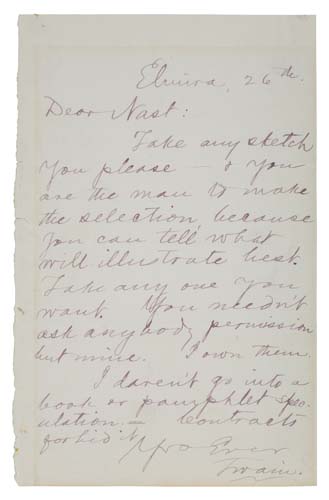 Elmira, 26th.
Dear Nast:
Take any sketch
you please — & you
are the man to make
the selection, because
you can tell what
will illustrate best.
Take any one you
want. You needn't
ask anybody permission
but mine. I own them.
I daren't go into a
book or pamphlet spec-
ulation — contracts
forbid it.
Yrs Ever
Twain.